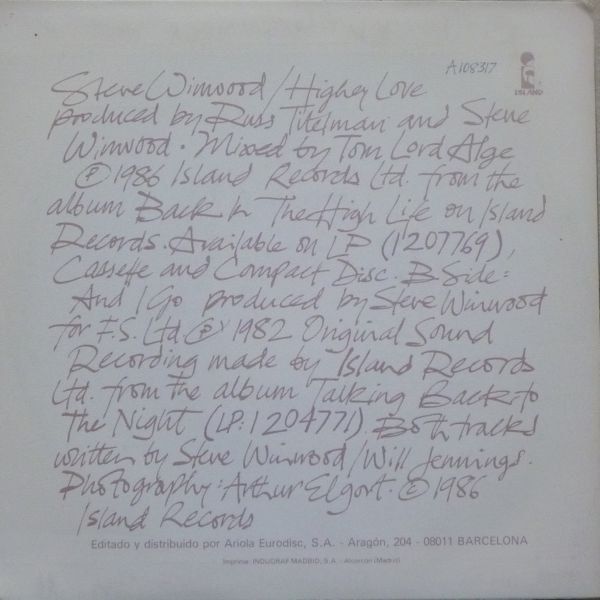 A108317
ISLAND
Steve Winwood / Higher Love
produced by Russ Titelman and Steve
Winwood. Mixed by Tom Lord Alge
℗ 1986 Island Records Ltd. from the
album Back In The High Life on Island
Records. Available on LP (1 207769),
Cassette and Compact Disc. B Side:
And I Go produced by Steve Winwood
for F.S. Ltd ℗ 1982 Original Sound
Recording made by Island Records
Ltd. from the album Talking Back to
The Night (LP: 1 204771) Both tracks
written by Steve Winwood / Will Jennings.
Photography: Arthur Elgort. © 1986
Island Records
Editado y distribuido por Ariola Eurodisc, S.A. - Aragón, 204 - 08011 BARCELONA
Imprime: INDUGRAF MADRID, S.A. - Alcorcón (Madrid)